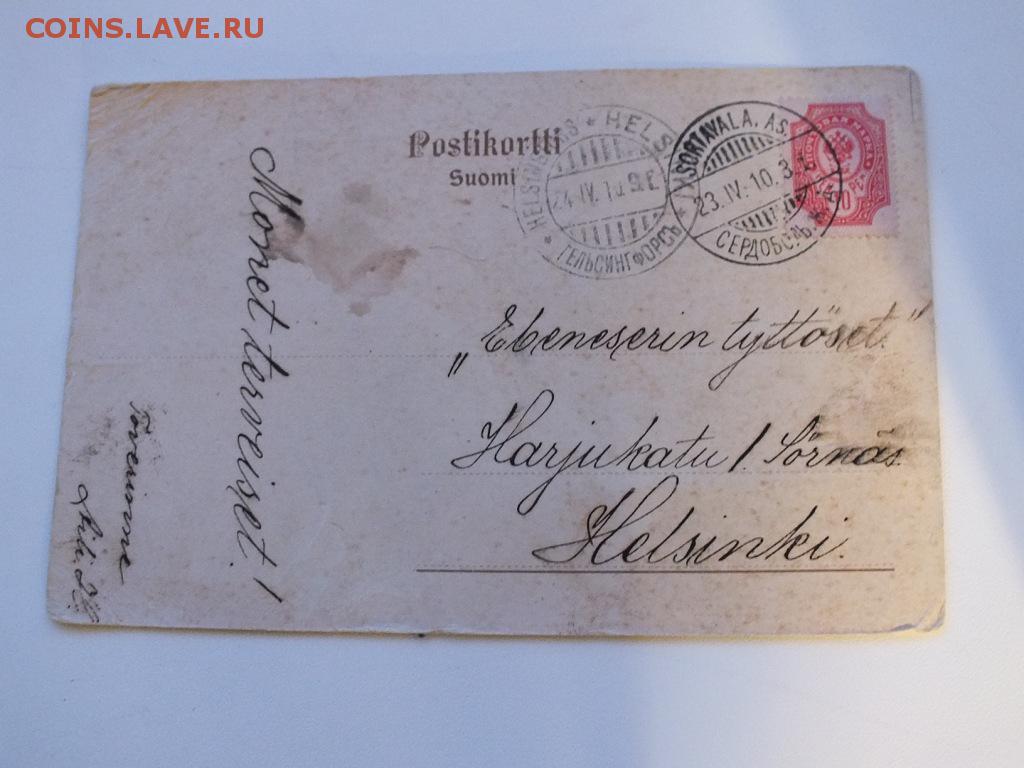 COINS.LAVE.RU
Postikortti
Suomi
HELSINGFORS * HELS
24.IV.10.9.E.
* ГЕЛЬСИНГФОРСЪ *
SORTAVALA. AS.
23.IV.10.3.
СЕРДОБОЛЬ
„Ebeneserin tyttöset”
Harjukatu 1 Sörnäs
Helsinki.
Monet terveiset!
Toveninne